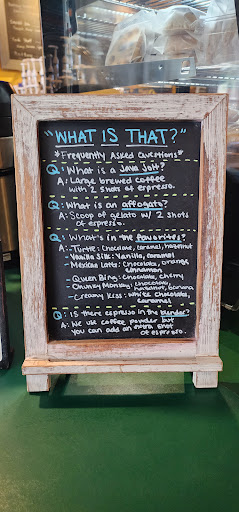 "WHAT IS THAT?"
*Frequently Asked Questions*
Q: What is a Java Jolt?
A: Large brewed coffee
with 2 shots of espresso.
Q: What is an affogato?
A: Scoop of gelato w/ 2 shots
of espresso.
Q: What's in the favorites?
A: - Turtle: Chocolate, caramel, hazelnut
- Vanilla Silk: Vanilla, caramel
- Mexican Latte: Chocolate, orange,
cinnamon
- Queen Bing: Chocolate, cherry
- Chunky Monkey: Chocolate,
hazelnut, banana
- Creamy Kiss: White chocolate,
caramel
Q: Is there espresso in the blender?
A: We use coffee powder but
you can add an extra shot
of espresso.